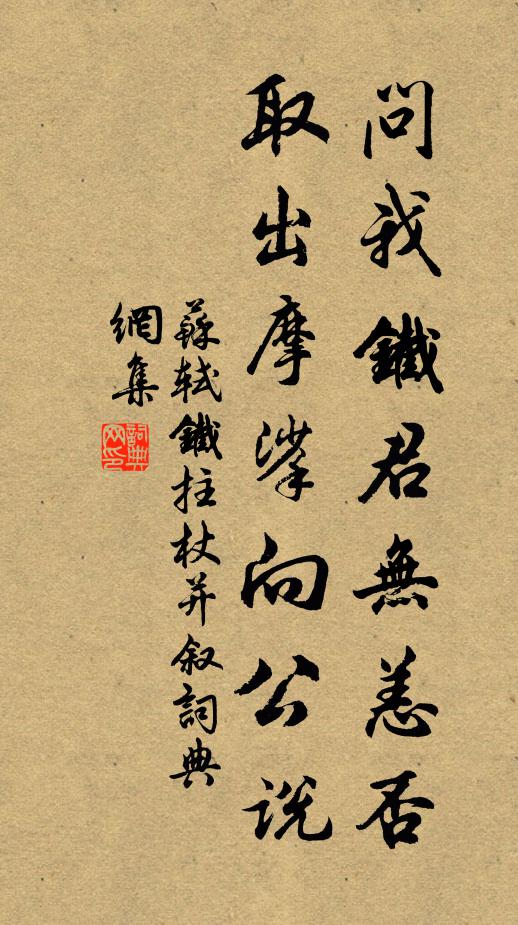 問我鐵君無恙否
取出摩挲向公説
蘇軾鐵拄杖并叙詞典
網集
詞典网印